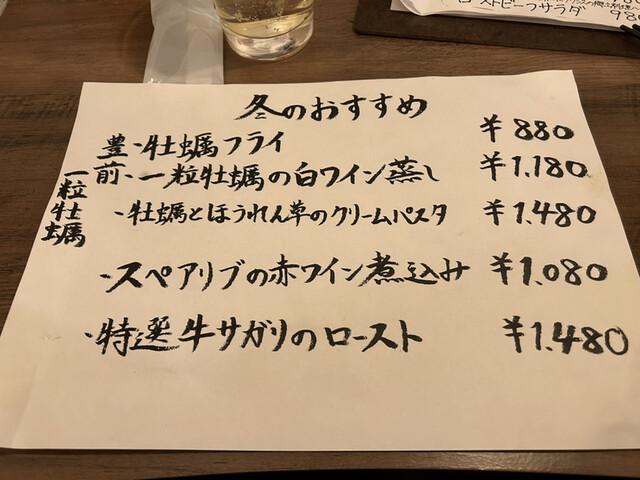 冬のおすすめ
豊前
一粒牡蠣
・牡蠣フライ ¥880
・一粒牡蠣の白ワイン蒸し ¥1.180
・牡蠣とほうれん草のクリームパスタ ¥1.480
・スペアリブの赤ワイン煮込み ¥1.080
・特選牛サガリのロースト ¥1.480
ローストビーフサラダ